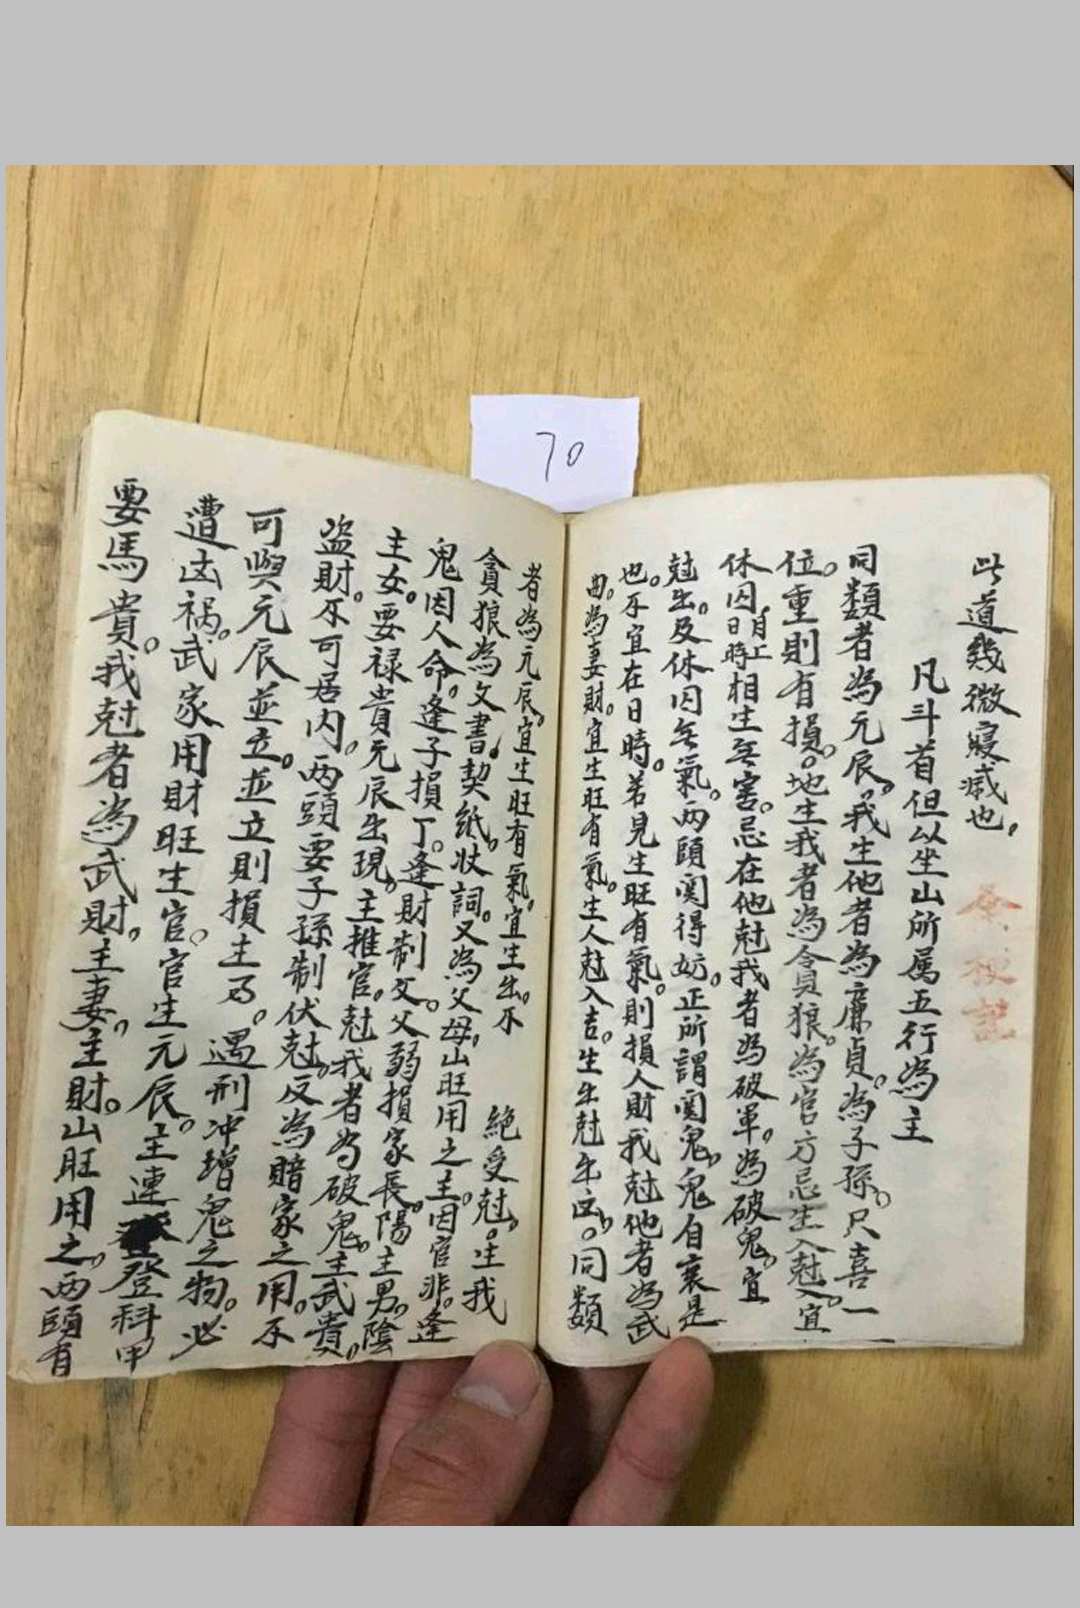 70
此道幾微寢臧也，
凡斗首但以坐山所属五行為主
同類者為元辰。我生他者為廉貞。為子孫。只喜一
位。重則有損。地生我者為貪狼。為官方忌生入尅入宜
休囚月上日時相生無害。忌在他尅我者為破軍。為破鬼。宜
尅出。及休囚無氣。两頭関得妨。正所謂関鬼。鬼自衰是
也。不宜在日時。若見生旺有氣。則損人財我尅他者為武
曲。為妻財。宜生旺有氣。生人尅入吉。生出尅出凶。同類
者為元辰。宜生旺有氣。宜生出。不絕受尅。生我
貪狼為文書。契紙。狀詞。又為父母，山旺用之。主因官非。逢
鬼因人命。逢子損丁。逢財制父。父弱損家長。陽主男。陰
主女。要禄貴元辰出現。主推官。尅我者為破鬼。主武貴。
盜財。不可居內。两頭要子孫制伏尅。反為賠家之用。不
可與元辰並立。並立則損主。遇刑冲增鬼之物。必
遭凶禍。武家用財旺生官。官生元辰。主連登科甲
要馬貴。我尅者為武財。主妻，主財。山旺用之。两頭有